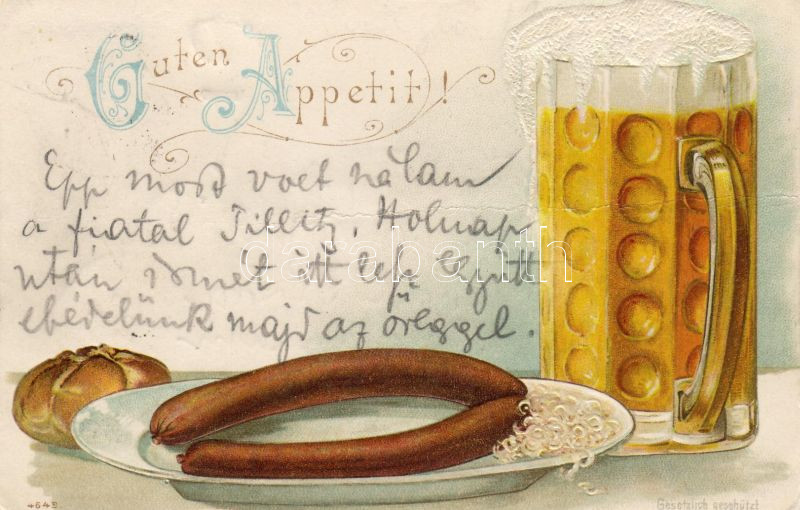 Guten
Appetit!
Epp most volt nálam
a fiatal Tillitz. Holnap
után ismét itt lesz együtt
ebédelünk majd az öreggel.
darabanth
4649
Gesetzlich geschützt